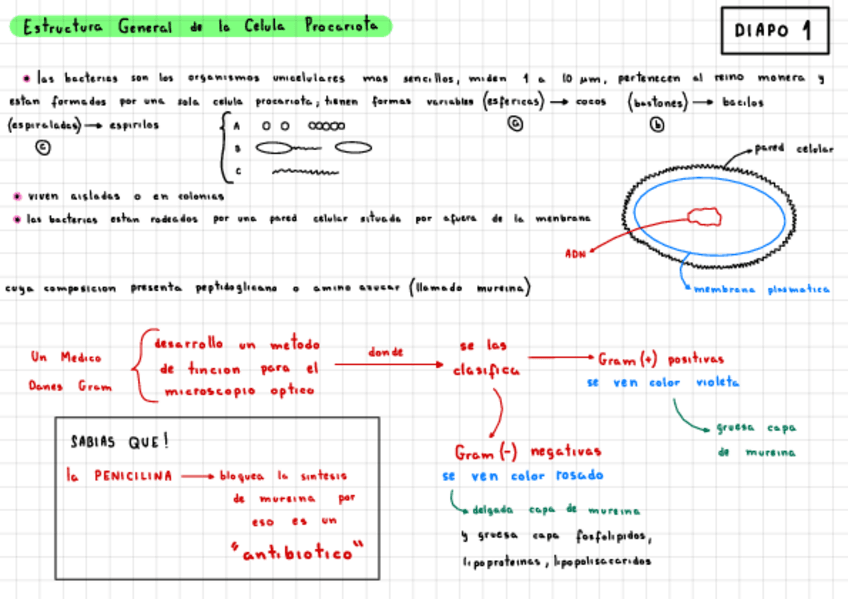 Estructura General de la Celula Procariota
DIAPO 1
• las bacterias son los organismos unicelulares mas sencillos, miden 1 a 10 µm, pertenecen al reino monera y
estan formados por una sola celula procariota, tienen formas variables (esfericas) → cocos (bastones) → bacilos
(espiraladas) → espirilos
a
b
c
A
B
C
pared celular
• viven aisladas o en colonias
• las bacterias estan rodeados por una pared celular situada por afuera de la menbrana
ADN
membrana plasmatica
cuya composicion presenta peptidoglicano o amino azucar (llamado mureina)
Un Medico
Danes Gram
desarrollo un metodo
de tincion para el
microscopio optico
donde
se las
clasifica
Gram (+) positivas
se ven color violeta
gruesa capa
de mureina
Gram (-) negativas
se ven color rosado
delgada capa de mureina
y gruesa capa fosfolipidos,
lipoproteinas, lipopolisacaridos
SABIAS QUE!
la PENICILINA → bloquea la sintesis
de mureina por
eso es un
"antibiotico"